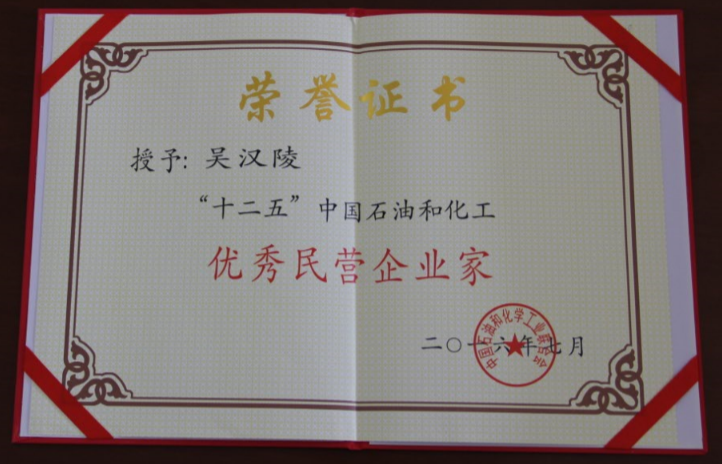 荣誉证书
授予: 吴汉陵
“十二五”中国石油和化工
优秀民营企业家
二〇一六年七月
中国石油和化学工业联合会